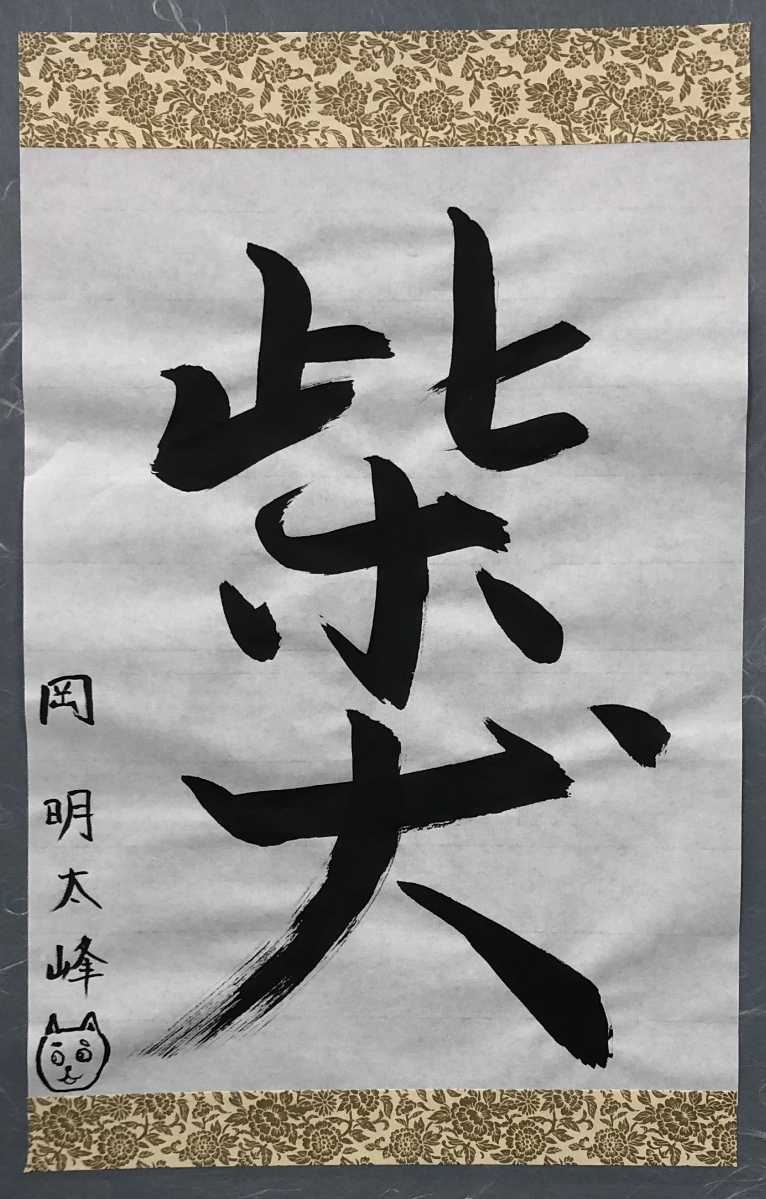 柴犬
岡 明太峰